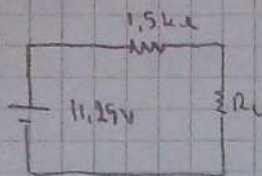 1,5kΩ
11,25v
RL